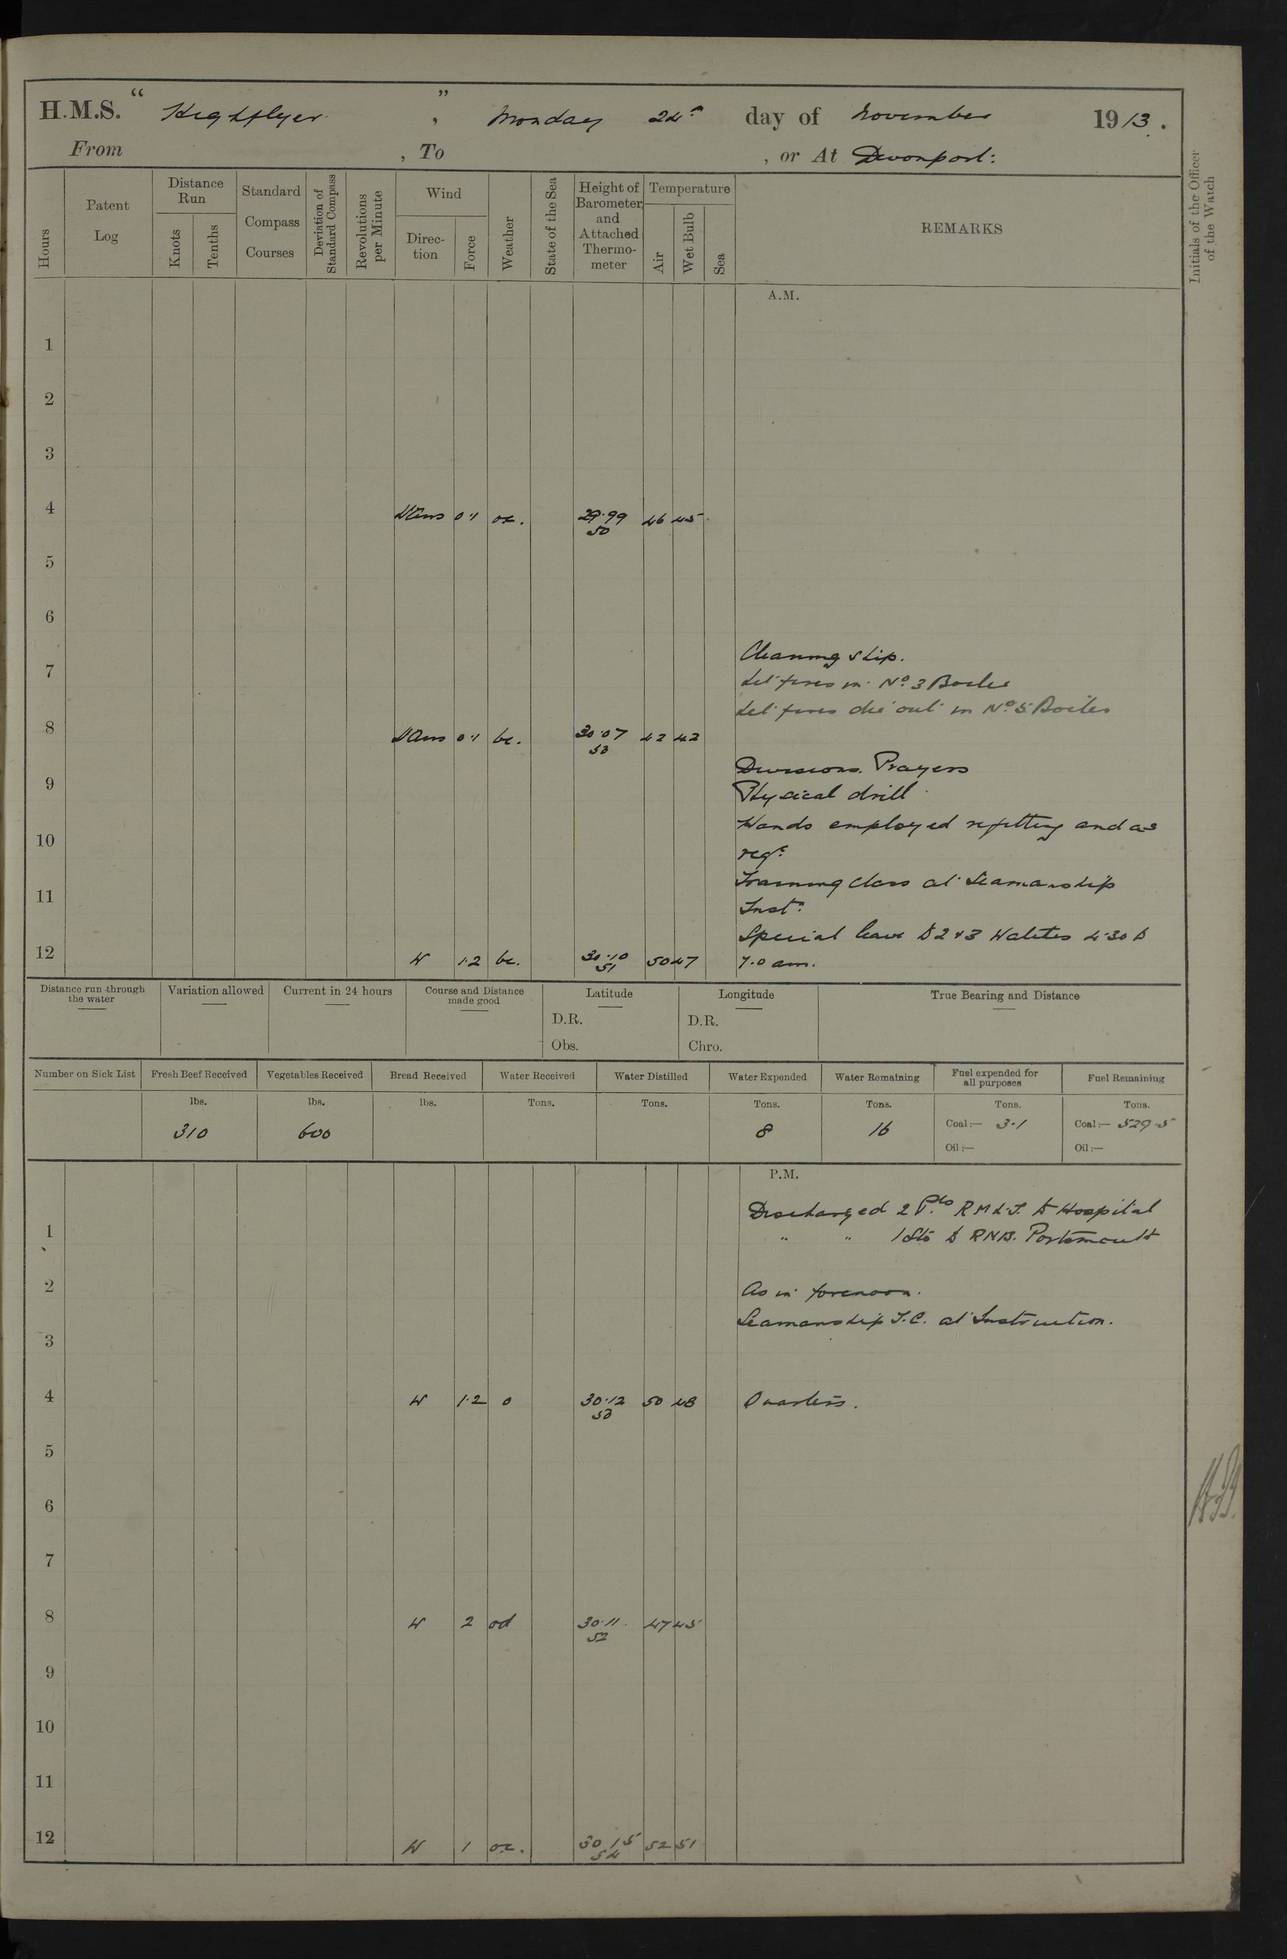 H.M.S. "Highflyer", Monday 24th day of November 1913.
From , To , or At Devonport:
Hours
Patent Log
Distance Run
Knots
Tenths
Standard Compass Courses
Deviation of Standard Compass
Revolutions per Minute
Wind
Direction
Force
Weather
State of the Sea
Height of Barometer and Attached Thermometer
Temperature
Air
Wet Bulb
Sea
REMARKS
Initials of the Officer of the Watch
A.M.
1
2
3
4 0·1 oc. 29·99 50 46 45
5
6
Cleaning ship.
7
Lit fires in No 3 Boiler
Let fires die out in No 5 Boiler
8 0·1 bc. 30·07 53 42 42
Divisions. Prayers
9
Physical drill.
Hands employed refitting and as
10
reqd
Training class at Seamanship
11
Instn
Special leave to 2 & 3 Watches 4·30 to
12 W 1·2 bc. 30·10 51 50 47 7·0 am.
Distance run through the water
Variation allowed
Current in 24 hours
Course and Distance made good
Latitude
D.R.
Obs.
Longitude
D.R.
Chro.
True Bearing and Distance
Number on Sick List
Fresh Beef Received
Vegetables Received
Bread Received
Water Received
Water Distilled
Water Expended
Water Remaining
Fuel expended for all purposes
Fuel Remaining
lbs. lbs. lbs. Tons. Tons. Tons. Tons. Tons. Tons.
310 600 8 16 Coal:— 3·1 Coal:— 529·5
Oil:— Oil:—
P.M.
Discharged 2 Ptes R.M.L.I. to Hospital
1
" " 1 Sto to R.N.B. Portsmouth
2 As in forenoon.
Seamanship T.C. at Instruction.
3
4 W 1·2 o 30·12 53 50 48 Quarters.
5
6
7
8 W 2 od 30·11 52 47 45
9
10
11
12 W 1 oc. 30 15 54 52 51